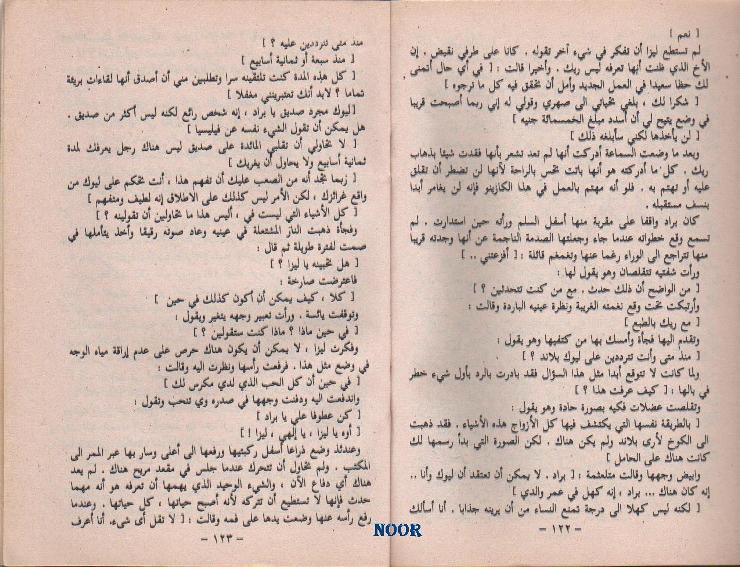 [ نعم ]
لم تستطع ليزا أن تفكر في شيء آخر تقوله . كانا على طرفي نقيض . إن
الأخ الذي ظنت أنها تعرفه ليس ريك . وأخيرا قالت : [ في أي حال أتمنى
لك حظا سعيدا في العمل الجديد وآمل أن تحقق فيه كل ما ترجوه ]
[ شكرا لك ، بلغي تحياتي الى صهري وقولي له إني ربما أصبحت قريبا
في وضع يتيح لي أن أسدد مبلغ الخمسمائة جنيه ]
[ لن يأخذها لكني سأبلغه ذلك ]
وبعد ما وضعت السماعة أدركت أنها لم تعد تشعر بأنها فقدت شيئا بذهاب
ريك . كل ما أدركته هو أنها باتت تحس بالراحة لأنها لن تضطر أن تقلق
عليه أو تهتم به . فلو أنه مهتم بالعمل في هذا الكازينو فإنه لن يغامر أبدا
بنسف مستقبله .
كان براد واقفا على مقربة منها أسفل السلم ورأته حين استدارت . لم
تسمع وقع خطواته عندما جاء وجعلتها الصدمة الناجمة عن أنها وجدته قريبا
منها تتراجع الى الوراء رغما عنها وتغمغم قائلة : [ أفزعتني .. ]
ورأت شفتيه تتقلصان وهو يقول لها :
[ من الواضح أن ذلك حدث . مع من كنت تتحدثين ؟ ]
وأرتبكت تحت وقع نغمته الغريبة ونظرة عينيه الباردة وقالت :
[ مع ريك بالطبع ]
وتقدم اليها فجأة وأمسك بها من كتفيها وهو يقول :
[ منذ متى وأنت تترددين على ليوك بلاند ؟ ]
ولما كانت لا تتوقع أبدا مثل هذا السؤال فقد بادرت بالرد بأول شيء خطر
في بالها : [ كيف عرفت هذا ؟ ]
وتقلصت عضلات فكيه بصورة حادة وهو يقول :
[ بالطريقة نفسها التي يكتشف فيها كل الأزواج هذه الأشياء . فقد ذهبت
الى الكوخ لأرى بلاند ولم يكن هناك . لكن الصورة التي بدأ رسمها لك
كانت هناك على الحامل ]
وابيض وجهها وقالت متلعثمة : [ براد . لا يمكن أن تعتقد أن ليوك وأنا ..
إنه كان هناك ... براد ، إنه كهل في عمر والدي ]
[ لكنه ليس كهلا الى درجة تمنع النساء من أن يرينه جذابا . أنا أسألك
– ١٢٢ –
منذ متى تترددين عليه ؟ ]
[ منذ سبعة أو ثمانية أسابيع ]
[ كل هذه المدة كنت تلتقينه سرا وتطلبين مني أن أصدق أنها لقاءات بريئة
تماما ؟ لابد أنك تعتبرينني مغفلا ]
[ليوك مجرد صديق يا براد ، إنه شخص رائع لكنه ليس أكثر من صديق .
هل يمكن أن تقول الشيء نفسه عن فيليسيا ]
[ لا تحاولي أن تقلبي المائدة على صديق ليس هناك رجل يعرفك لمدة
ثمانية أسابيع ولا يحاول أن يغريك ]
[ ربما تجد أنه من الصعب عليك أن تفهم هذا ، أنت تحكم على ليوك من
واقع غرائزك ، لكن الأمر ليس كذلك على الاطلاق إنه لطيف ومتفهم ]
[ كل الأشياء التي ليست في ، أليس هذا ما تحاولين أن تقولينه ؟ ]
وفجأة ذهبت النار المشتعلة في عينيه وعاد صوته رقيقا وأخذ يتأملها في
صمت لفترة طويلة ثم قال :
[ هل تحبينه يا ليزا ؟ ]
فاعترضت صارخة :
[ كلا ، كيف يمكن أن أكون كذلك في حين ]
وتوقفت يائسة . ورأت تعبير وجهه يتغير ويقول :
[ في حين ماذا ؟ ماذا كنت ستقولين ؟ ]
وفكرت ليزا ، لا يمكن أن يكون هناك حرص على عدم إراقة مياه الوجه
في وضع مثل هذا . فرفعت رأسها ونظرت اليه وقالت :
[ في حين أن كل الحب الذي لدي مكرس لك ]
واندفعت اليه ودفنت وجهها في صدره وي تنحب وتقول :
[ كن عطوفا علي يا براد ]
[ أوه يا ليزا ، يا إلهي ، ليزا ! ]
وعندئذ وضع ذراعا أسفل ركبتيها ورفعها الى أعلى وسار بها عبر الممر الى
المكتب . ولم تحاول أن تتحرك عندما جلس في مقعد مريح هناك . لم يعد
هناك أي دفاع الآن ، والشيء الوحيد الذي يهمها أن تعرفه هو أنه مهما
حدث فإنها لا تستطيع أن تتركه لأنه أصبح حياتها ، كل حياتها . وعندما
رفع رأسه عنها وضعت يدها على فمه وقالت : [ لا تقل أي شيء، أنا أعرف
– ١٢٣ –
NOOR